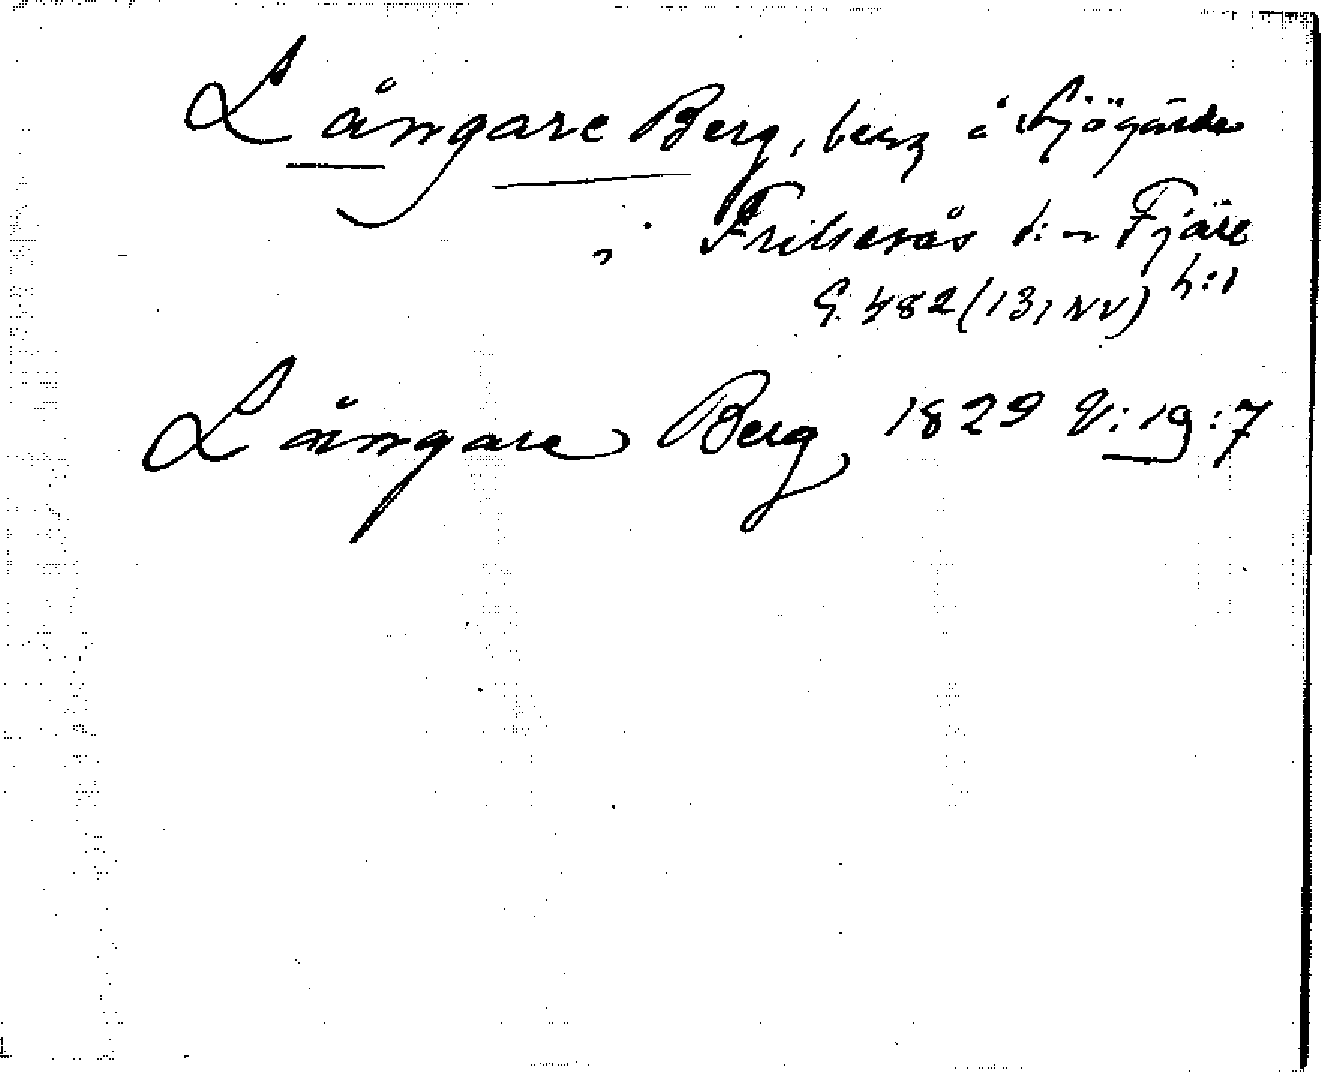 Långare Berg, berg å Sjögärde
i Frillesås s:n Fjäre
G. 482 (13, NV) h:d
Långare Berg 1829 V:19:7